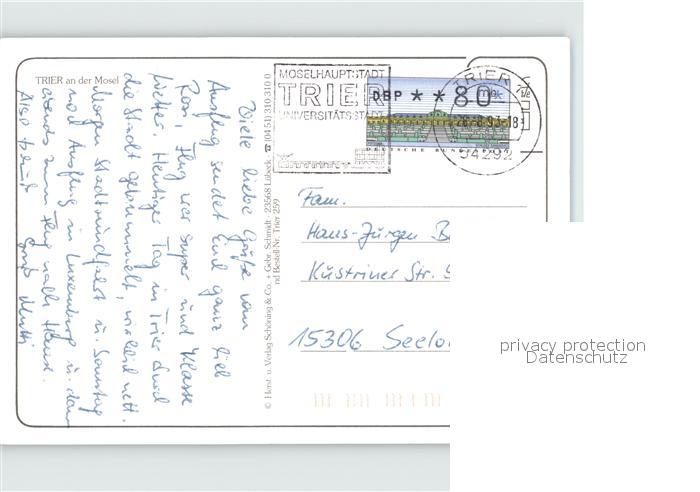 TRIER an der Mosel
MOSELHAUPTSTADT
TRIER
UNIVERSITÄTSSTADT
DBP * * 80
DEUTSCHE BUNDESPOST
TRIER
54292
Viele liebe Grüße vom
Ausflug sendet Euch ganz lieb
Rosi, Flug war super und Klasse
Wetter. Heutiger Tag in Trier durch
die Stadt gebummelt, wirklich nett.
Morgen Stadtrundfahrt u. Sonntag
noch Ausflug in Luxemburg u. dann
abends zum Flug nach Hause.
Also tschüß
Gruß Mutti
© Horst. u. Verlag Schöning & Co. + Gebr. Schmidt · 23568 Lübeck · ☎ (0451) 310 310 0
nd Bestell-Nr. Trier 259
Fam.
Hans-Jürgen B
Küstriner Str.
15306 Seelo
privacy protection
Datenschutz